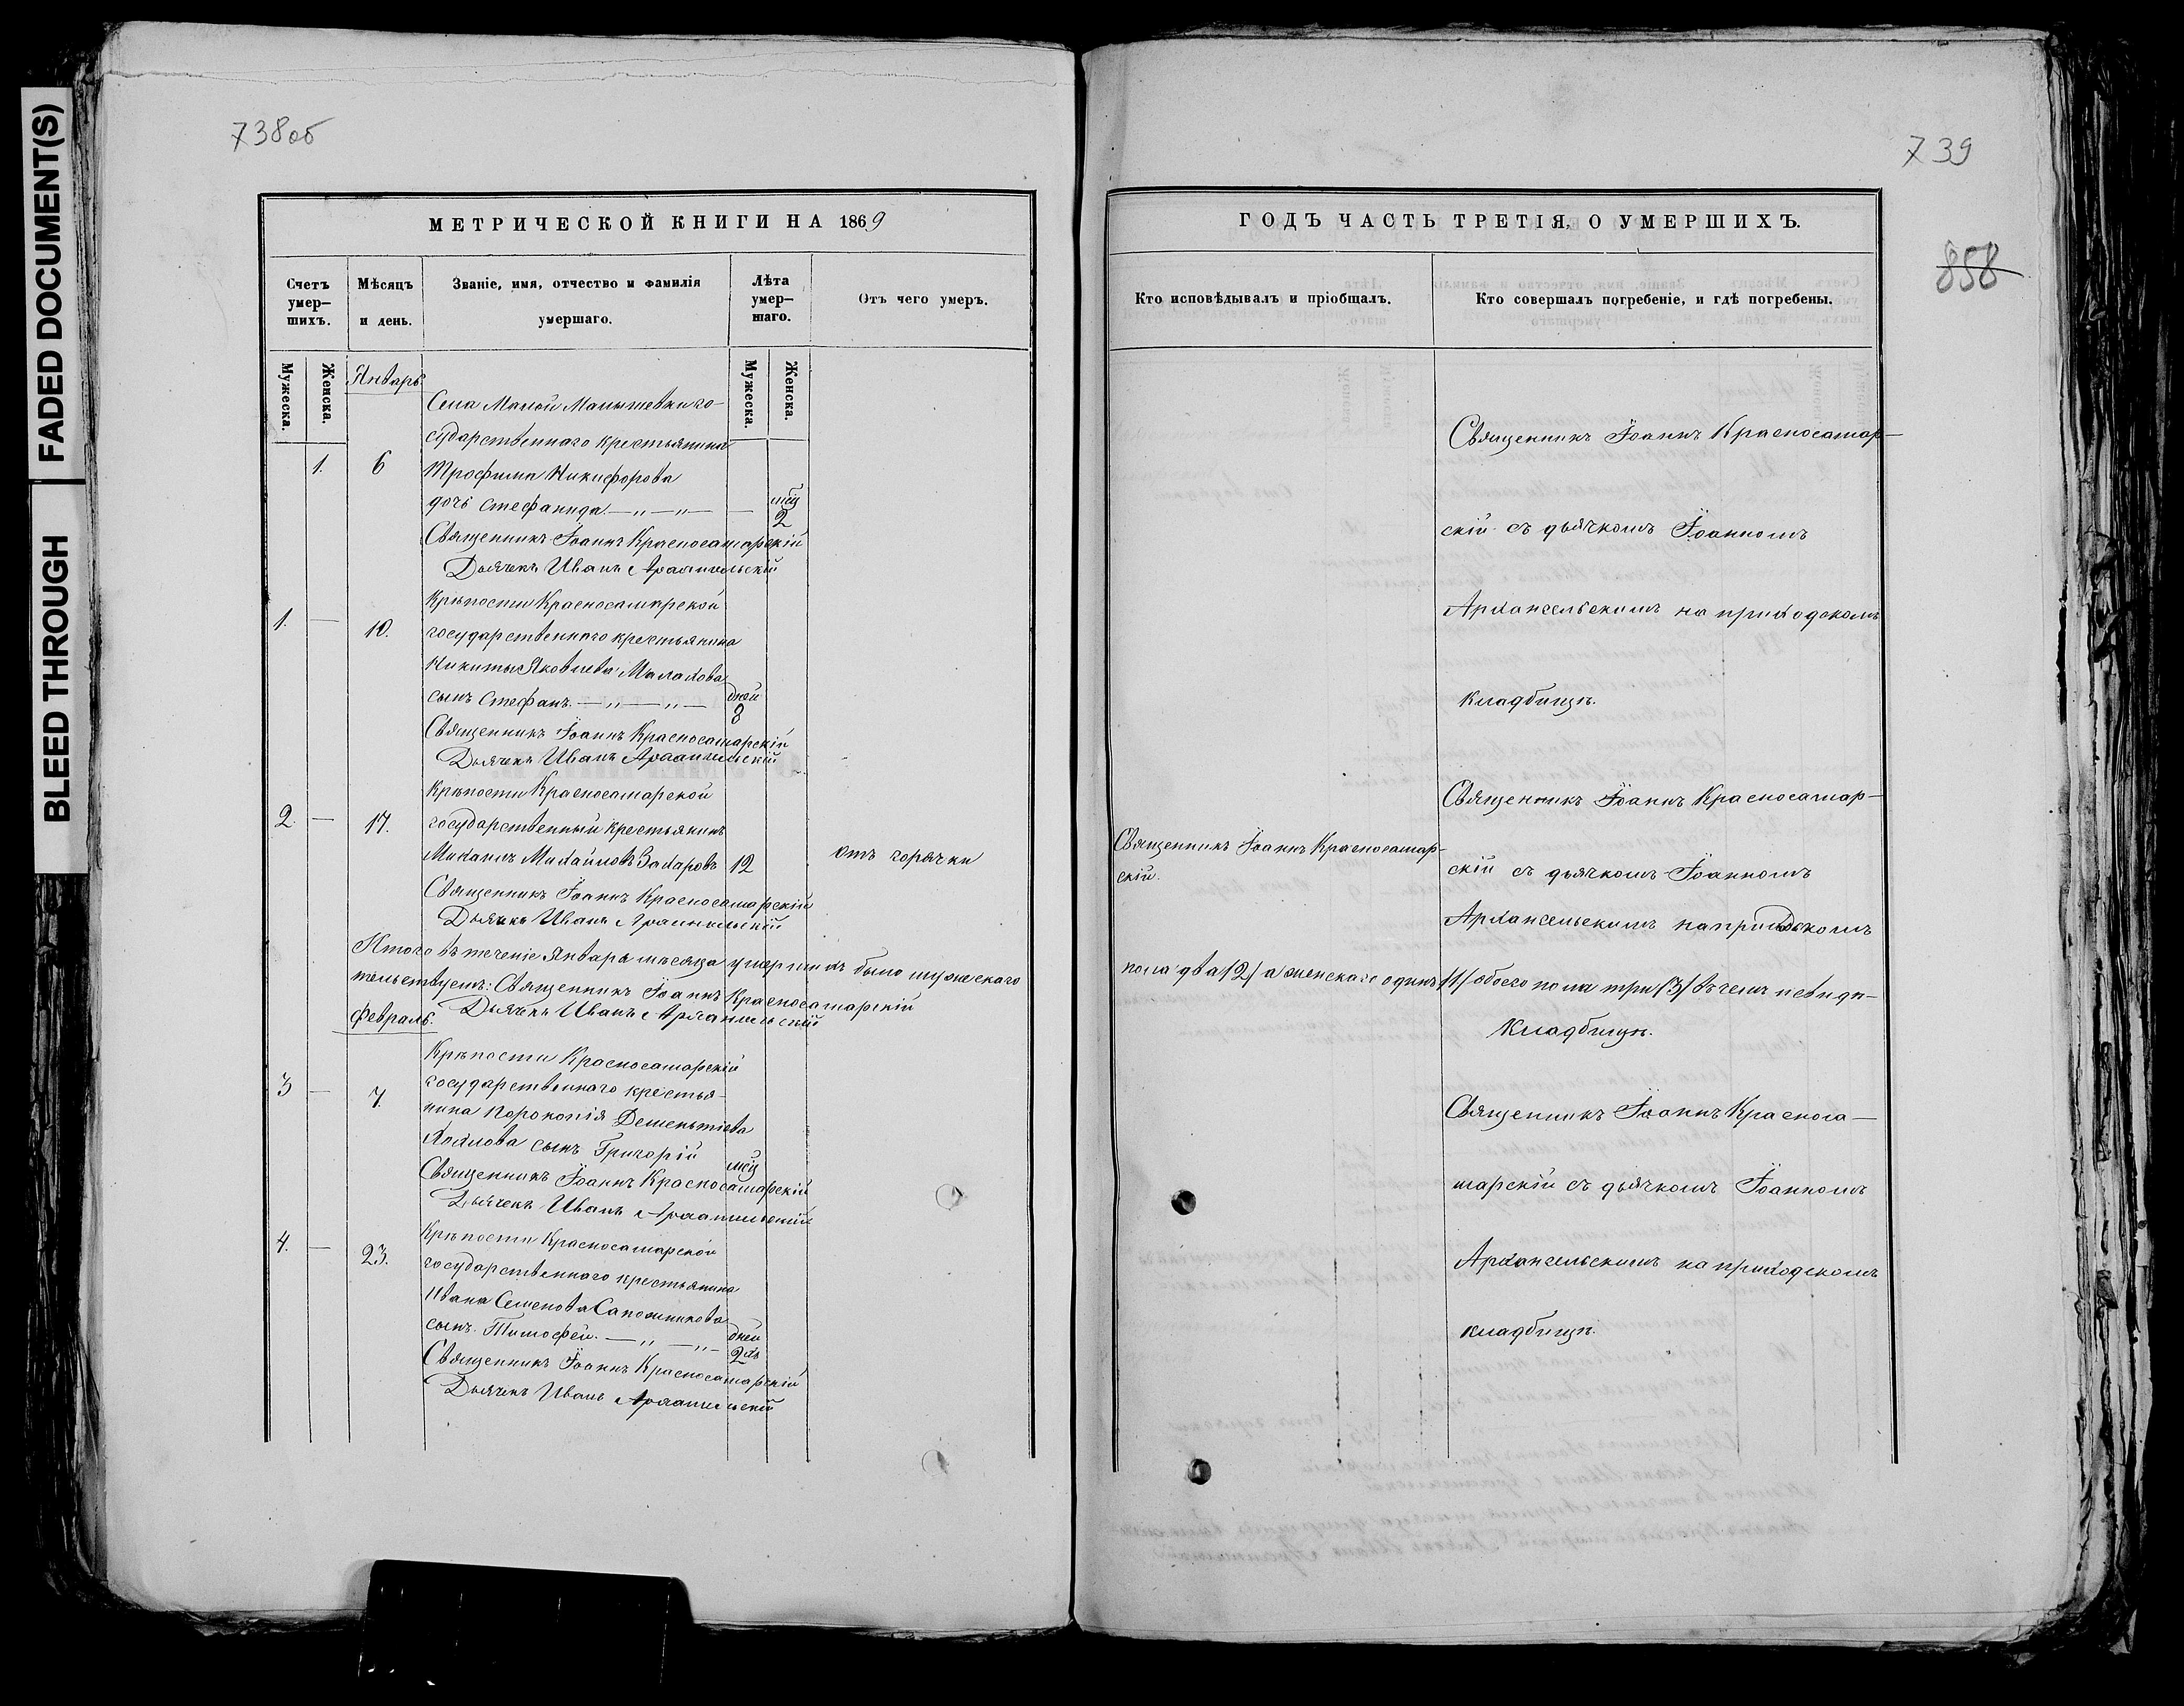 FADED DOCUMENT(S)
BLEED THROUGH
738об
МЕТРИЧЕСКОЙ КНИГИ НА 1869
Счетъ умер-шихъ.
Мѣсяцъ и день.
Званіе, имя, отчество и фамилія умершаго.
Лѣта умер-шаго.
Отъ чего умеръ.
Мужеска.
Женска.
Мужеска.
Женска.
Январь
Села Малой Малышевки го-
сударственнаго крестьянина
1. 6 Трофима Никифорова
дочь Стефанида. — „ — „ — — мѣц 2
Священникъ Іоаннъ Красносамарскій
Дьячекъ Иванъ Архангельскій
Крѣпости Красносамарской
1. — 10. государственнаго крестьянина
Никиты Яковлева Малахова
сынъ Стефанъ. — „ — „ — дней 8
Священникъ Іоаннъ Красносамарскій
Дьячекъ Иванъ Архангельскій
Крѣпости Красносамарской
2. — 17. государственный крестьянинъ
Михаилъ Михайловъ Захаровъ 12 отъ горячки
Священникъ Іоаннъ Красносамарскій
Дьячекъ Иванъ Архангельскій
Итого въ теченіе Января мѣсяца умершихъ было мужескаго
тельствуемъ: Священникъ Іоаннъ Красносамарскій
Дьячекъ Иванъ Архангельскій
Февраль.
Крѣпости Красносамарскій
3 — 7. государственнаго крестья-
нина Порокопія Дементіева
сынъ Григорій мѣц
Священникъ Іоаннъ Красносамарскій
Дьячекъ Иванъ Архангельскій
Крѣпости Красносамарской
4. — 23. государственнаго крестьянина
Ивана Семенова Сапожникова
сынъ. Тимофей. — „ — „ — дней 2хъ
Священникъ Іоаннъ Красносамарскій
Дьячекъ Иванъ Архангельскій
739
858
ГОДЪ ЧАСТЬ ТРЕТІЯ, О УМЕРШИХЪ.
Кто исповѣдывалъ и пріобщалъ.
Кто совершалъ погребеніе, и гдѣ погребены.
Священникъ Іоаннъ Красносамар-
скій съ дьячкомъ Іоанномъ
Архангельскимъ на приходскомъ
кладбищѣ.
Священникъ Іоаннъ Красносамар-
Священникъ Іоаннъ Красносамар-
скій.
скій съ дьячкомъ Іоанномъ
Архангельскимъ на приходскомъ
пола два /2/ а женскаго одинъ /1/ обоего пола три /3/ въ чемъ и свидѣ-
Кладбищѣ.
Священникъ Іоаннъ Красноса-
марскій съ дьячкомъ Іоанномъ
Архангельскимъ на приходскомъ
кладбищѣ.